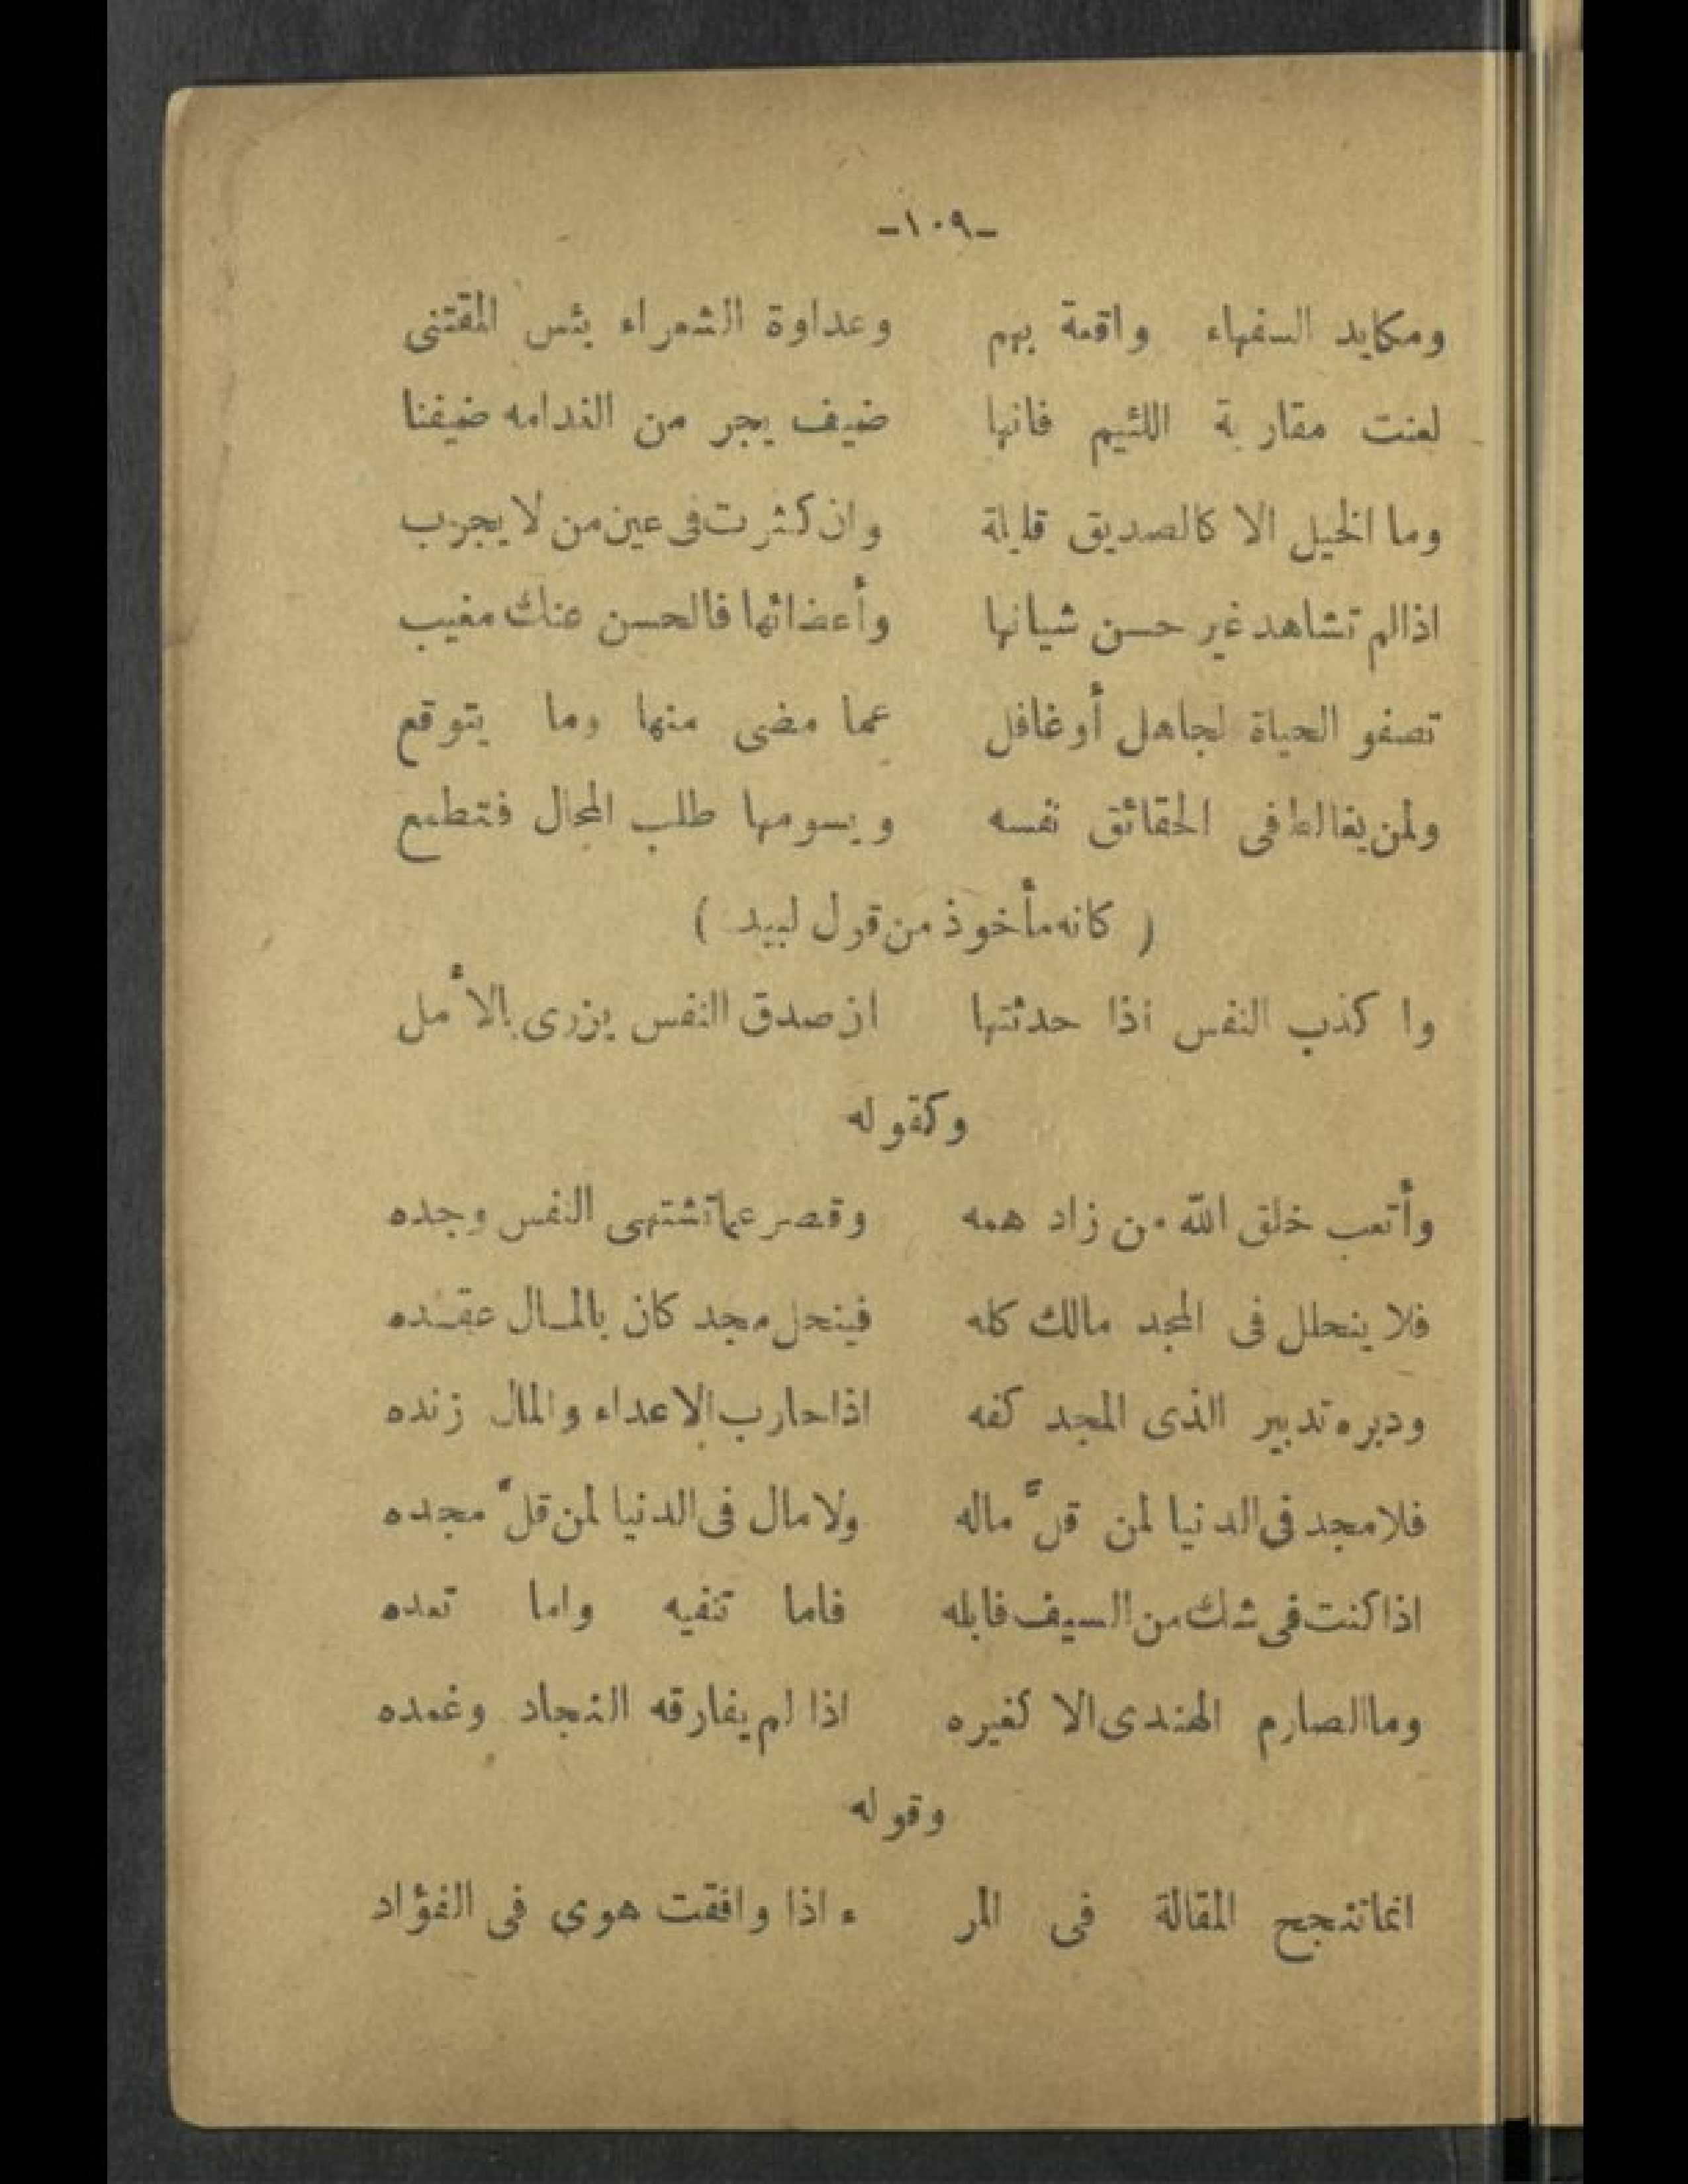 -١٠٩-
ومكايد السفهاء واقعة بهم وعداوة الشعراء بئس المقتنى
لعنت مقاربة اللئيم فانها ضيف يجر من الندامه ضيفنا
وما الخيل الا كالصديق قليلة وان كثرت فى عين من لا يجرب
اذالم تشاهد غير حسن شياتها وأعضائها فالحسن عنك مغيب
تصفو الحياة لجاهل أو غافل عما مضى منها وما يتوقع
ولمن يغالط فى الحقائق نفسه ويسومها طلب المحال فتطمع
( كانه مأخوذ من قول لبيد )
وا كذب النفس اذا حدثتها ان صدق النفس يزرى بالأمل
وكقوله
وأتعب خلق الله من زاد همه وقصر عما تشتهى النفس وجده
فلا ينحلل فى المجد مالك كله فينحل مجد كان بالمال عقده
ودبره تدبير الذى المجد كفه اذا حارب الاعداء والمال زنده
فلا مجد فى الدنيا لمن قلَّ ماله ولا مال فى الدنيا لمن قلَّ مجده
اذا كنت فى شك من السيف فابله فاما تنفيه واما تعده
وما الصارم الهندى الا كغيره اذا لم يفارقه النجاد وغمده
وقوله
انما تنجح المقالة فى المر ء اذا وافقت هوى فى الفؤاد